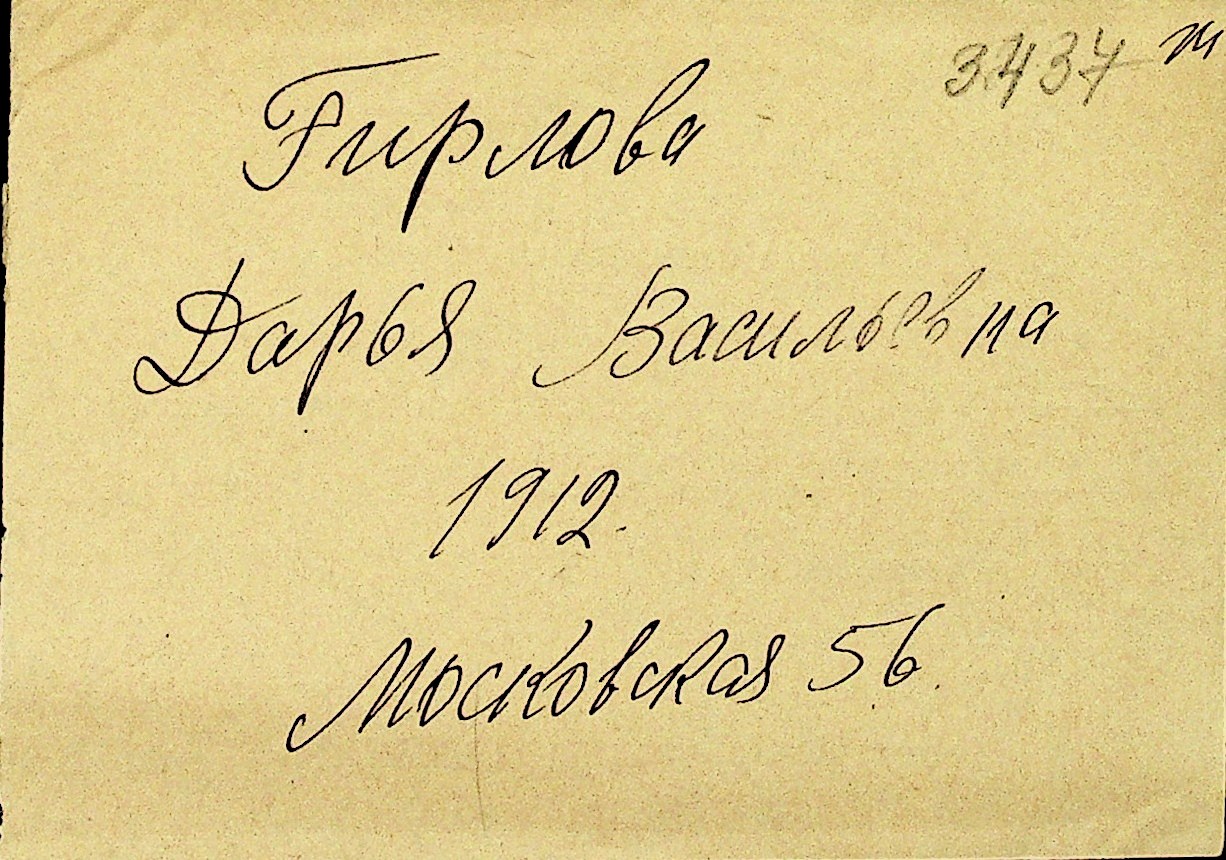 3437 т
Гирлова
Дарья Васильевна
1912.
Московская 56.